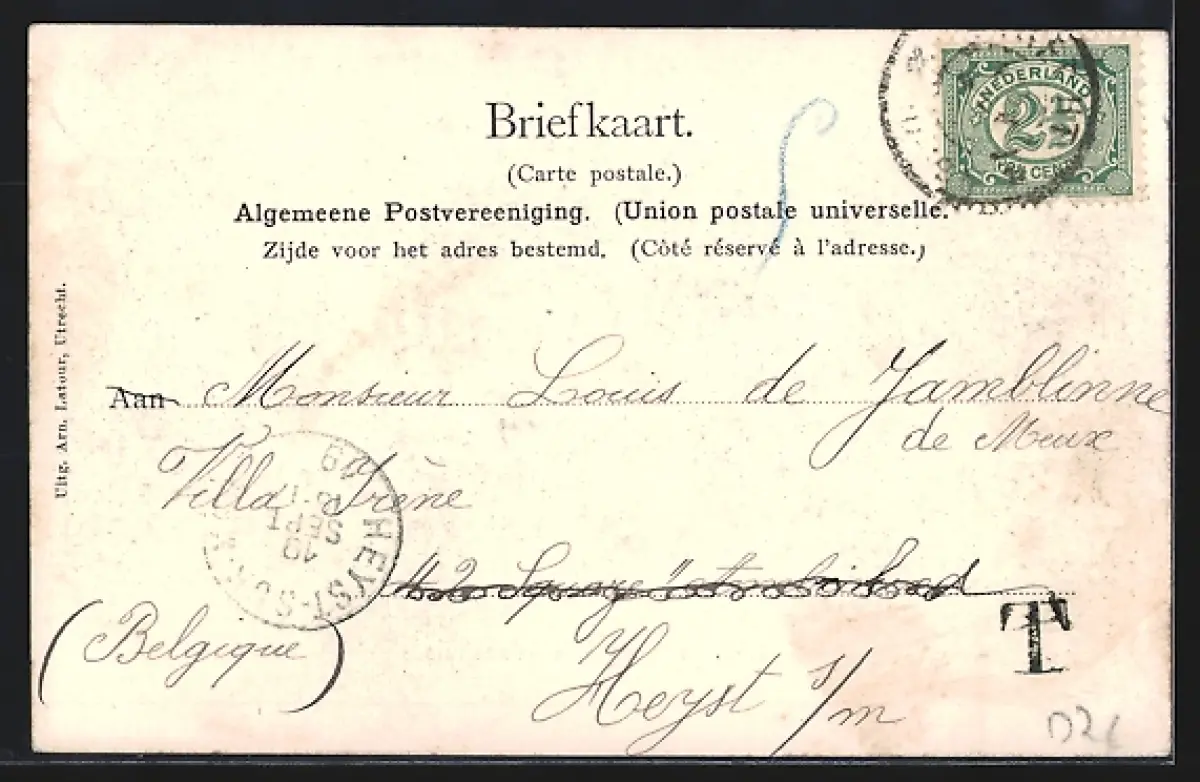 NEDERLAND
2½
CENT
Briefkaart.
(Carte postale.)
Algemeene Postvereeniging. (Union postale universelle.)
Zijde voor het adres bestemd. (Côté réservé à l'adresse.)
Uitg. Arn. Latour, Utrecht.
Aan Monsieur Louis de Jamblinne
de Meux
Villa Irène
HEYST-S
SEPT
10
42 Square
(Belgique)
Heyst s/m
T
D21